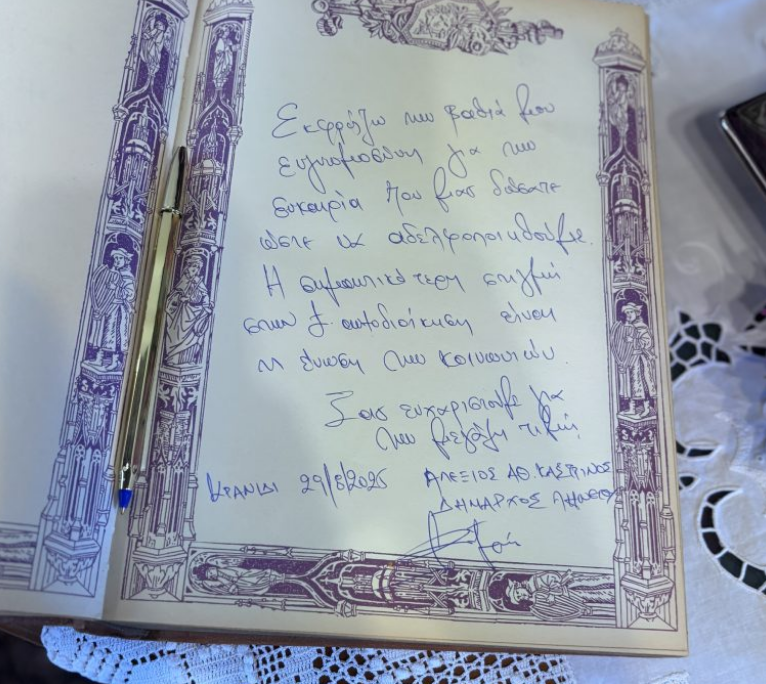 Εκφράζω την βαθιά μου
ευγνωμοσύνη για την
ευκαιρία που μας δώσατε
ώστε να αδελφοποιηθούμε.
Η σημαντικότερη στιγμή
στην αυτοδιοίκηση είναι
η ένωση των κοινωνιών.
Σας ευχαριστούμε για
την μεγάλη τιμή,
ΚΡΑΝΙΔΙ 29/8/2025 ΑΛΕΞΙΟΣ ΑΘ. ΚΑΣΤΡΙΝΟΣ
ΔΗΜΑΡΧΟΣ